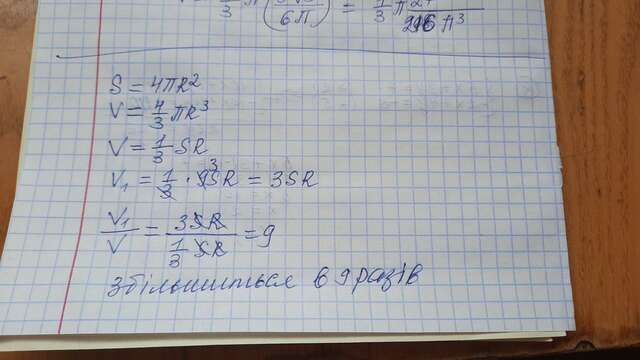 S = 4πR²
V = 4/3 πR³
V = 1/3 SR
V₁ = 1/3 · 9SR = 3SR
V₁/V = 3SR / 1/3 SR = 9
збільшиться в 9 разів